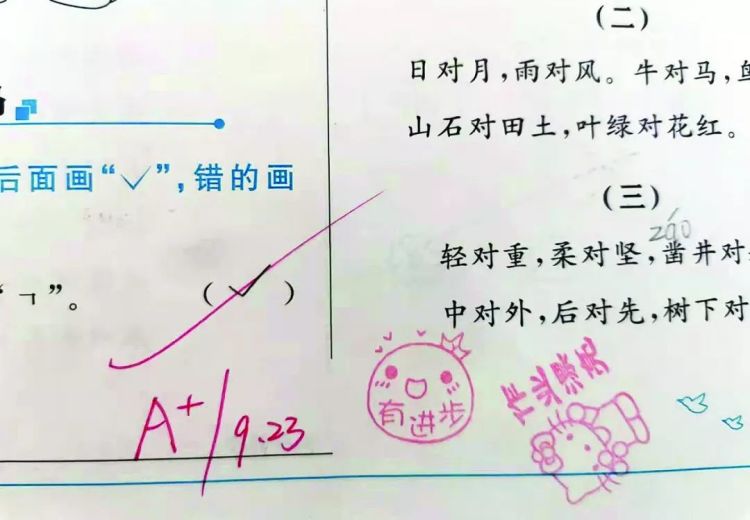 后面画“✓”，错的画
“ㄱ”。 （✓）
A+/9.23
（二）
日对月，雨对风。牛对马，
山石对田土，叶绿对花红。
（三）
záo
轻对重，柔对坚，凿井对
中对外，后对先，树下对
有进步